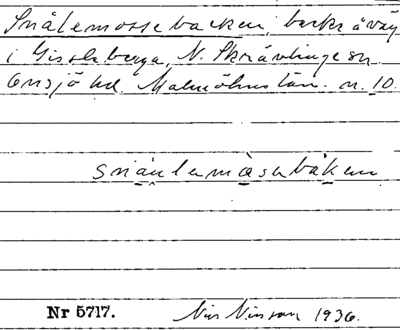 Snålemossebacken, backe å väg
i Gisslaberga, N. Skrävlinge sn.
Onsjö hd. Malmöhus län. n. 10.
snåulemåsabåken
Nr 5717. Nils Nilsson 1936.